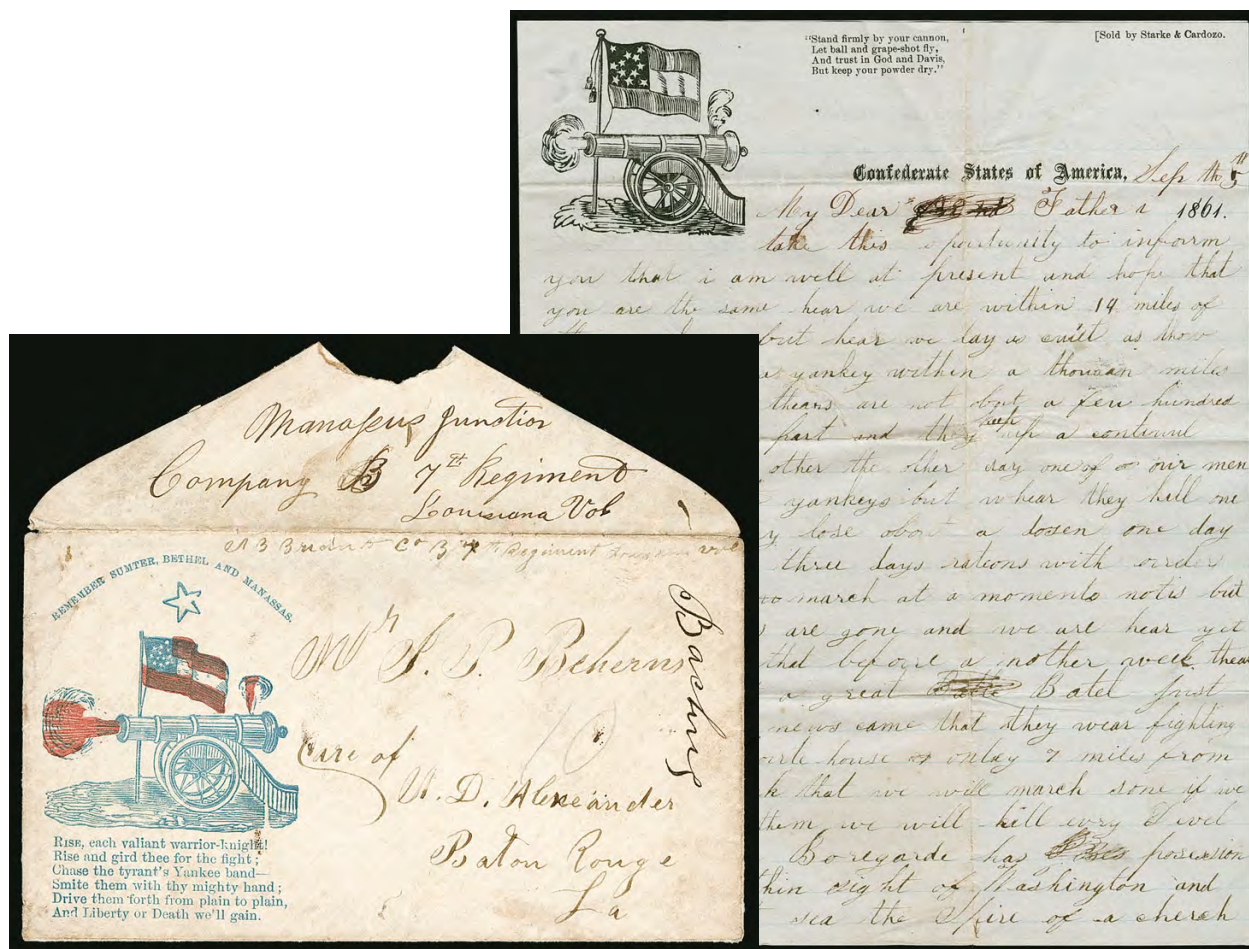 "Stand firmly by your cannon,
Let ball and grape-shot fly,
And trust in God and Davis,
But keep your powder dry."
[Sold by Starke & Cardozo.
Confederate States of America, Sep th 5th
1861.
My Dear Father i
take this opportunity to inform
you that i am well at present and hope that
you are the same hear we are within 14 miles of
but hear we lay as quiet as tho
a yankey within a thousan miles
thears are not obout a few hundred
part and they keep up a continul
other the other day one of our men
yankeys but whear they kill one
lose obout a dosen one day
three days rations with orders
to march at a moments notis but
are gone and we are hear yet
that before a nother week thear
a great Batel just
news came that they wear fighting
house onley 7 miles from
that we will march sone if we
them we will kill evry Devel
Boregarde has posession
thin sight of Washington and
sea the Spire of a cherch
Manassus Junction
Company B 7th Regiment
Louisiana Vol
Co B 7th Regiment
REMEMBER SUMTER, BETHEL AND MANASSAS.
Mr S. P. Beherns
Care of
U. D. Alexeander
Baton Rouge
La
RISE, each valiant warrior-knight!
Rise and gird thee for the fight;
Chase the tyrant's Yankee band—
Smite them with thy mighty hand;
Drive them forth from plain to plain,
And Liberty or Death we'll gain.